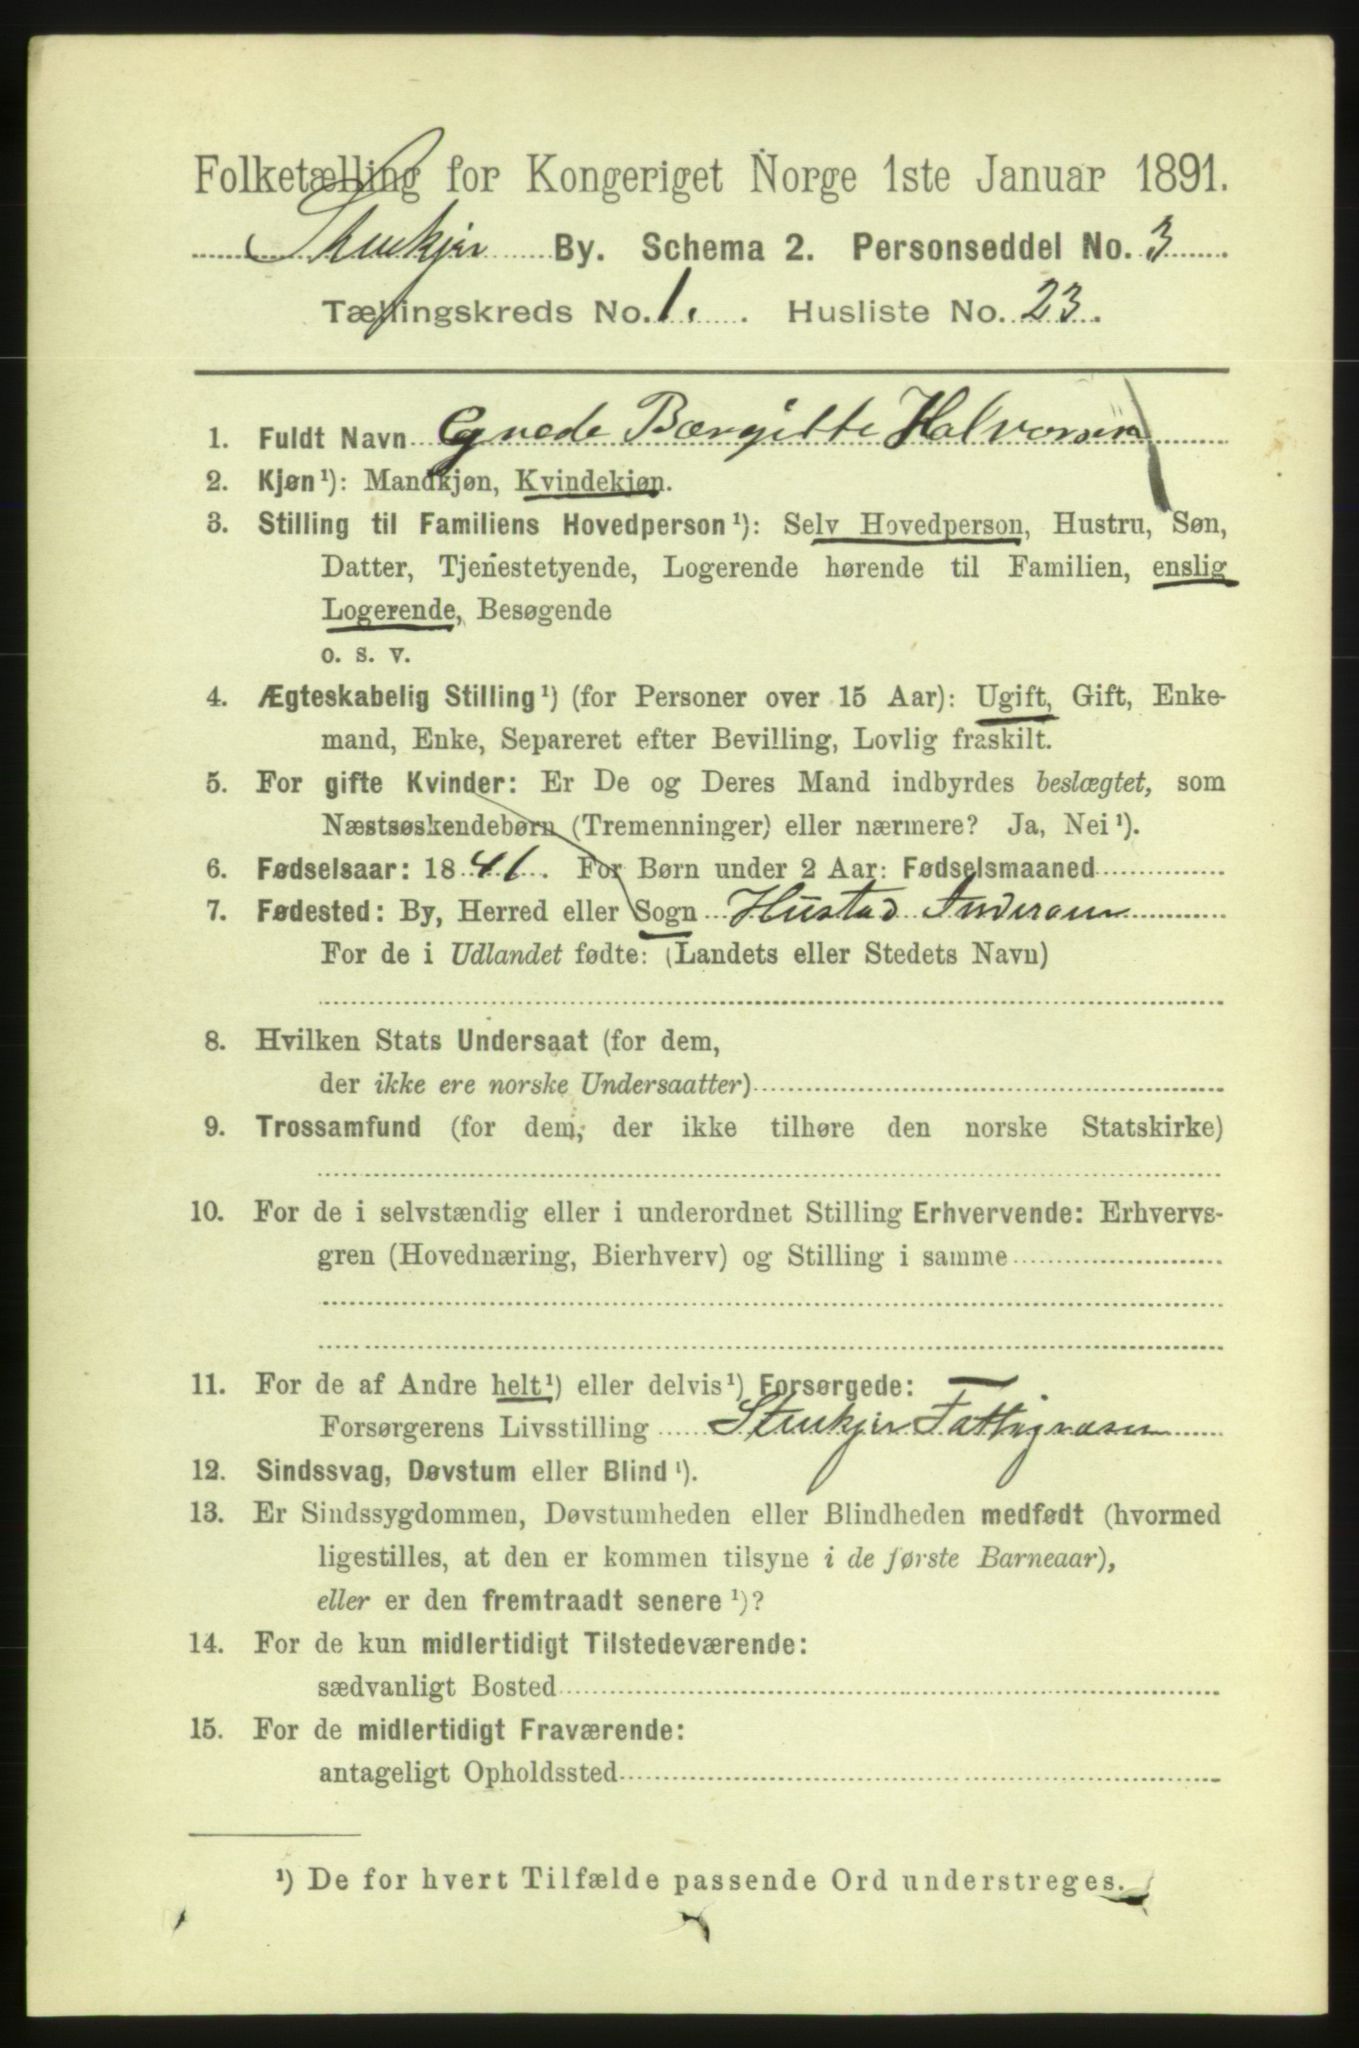 Folketælling for Kongeriget Norge 1ste Januar 1891.
Stenkjer By. Schema 2. Personseddel No. 3
Tællingskreds No. 1. Husliste No. 23.
1. Fuldt Navn Bærgitte Halvorsen
2. Kjøn¹): Mandkjøn, Kvindekjøn.
3. Stilling til Familiens Hovedperson¹): Selv Hovedperson, Hustru, Søn,
Datter, Tjenestetyende, Logerende hørende til Familien, enslig
Logerende, Besøgende
o. s. v.
4. Ægteskabelig Stilling¹) (for Personer over 15 Aar): Ugift, Gift, Enke-
mand, Enke, Separeret efter Bevilling, Lovlig fraskilt.
5. For gifte Kvinder: Er De og Deres Mand indbyrdes beslægtet, som
Næstsøskendebørn (Tremenninger) eller nærmere? Ja, Nei¹).
6. Fødselsaar: 1841. For Børn under 2 Aar: Fødselsmaaned
7. Fødested: By, Herred eller Sogn Hustad Inderøen
For de i Udlandet fødte: (Landets eller Stedets Navn)
8. Hvilken Stats Undersaat (for dem,
der ikke ere norske Undersaatter)
9. Trossamfund (for dem, der ikke tilhøre den norske Statskirke)
10. For de i selvstændig eller i underordnet Stilling Erhvervende: Erhvervs-
gren (Hovednæring, Bierhverv) og Stilling i samme
11. For de af Andre helt¹) eller delvis¹) Forsørgede:
Forsørgerens Livsstilling Stenkjer Fattigvæsen
12. Sindssvag, Døvstum eller Blind¹).
13. Er Sindssygdommen, Døvstumheden eller Blindheden medfødt (hvormed
ligestilles, at den er kommen tilsyne i de første Barneaar),
eller er den fremtraadt senere¹)?
14. For de kun midlertidigt Tilstedeværende:
sædvanligt Bosted
15. For de midlertidigt Fraværende:
antageligt Opholdssted
¹) De for hvert Tilfælde passende Ord understreges.